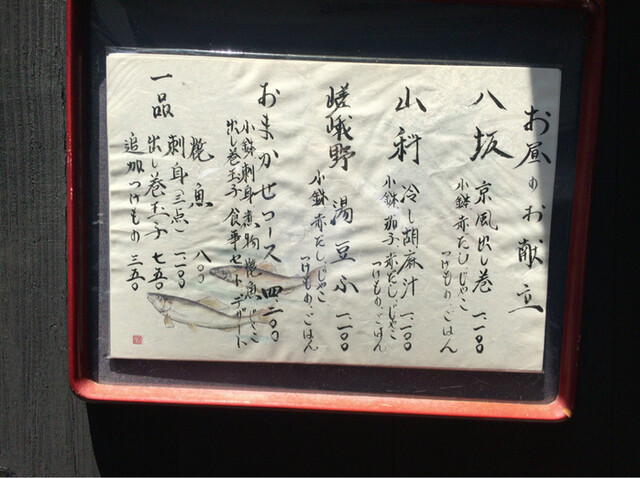 お昼のお献立
八坂 京風出し巻 一、一〇〇
小鉢 赤だし じゃこ
つけもの、ごはん
山科 冷し胡麻汁 一、一〇〇
小鉢 茄子 赤だし じゃこ
つけもの、ごはん
嵯峨野 湯豆ふ 一、一〇〇
小鉢 赤だし、じゃこ
つけもの、ごはん
おまかせコース 四二〇〇
小鉢 刺身 煮物 焼魚 じゃこ
出し巻玉子 食事セット デザート
一品
焼魚 八〇〇
刺身(三点) 一、二〇〇
出し巻玉子 七五〇
追加つけもの 三五〇